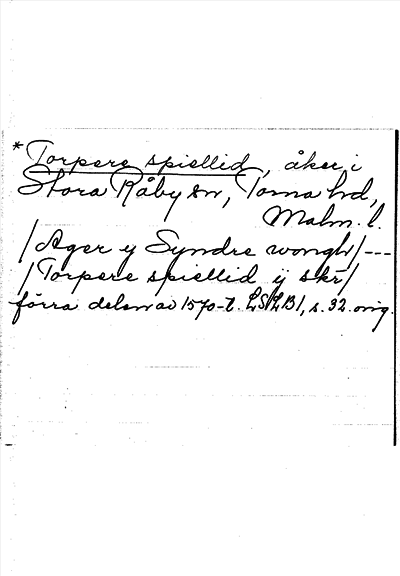 * Torpere spiellid, åker i
Stora Råby sn, Torna hd,
Malm. l.
/Ager y Syndre wongh/---
/Torpere spiellid ij skr/
förra delen av 1570-t. LSLB1, s. 32. orig.